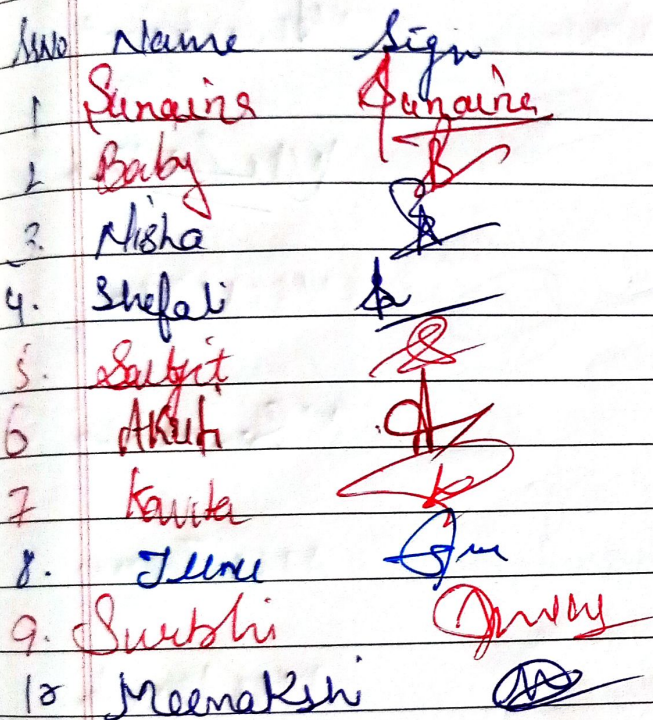 S.No Name Sign
1 Sunaina Sunaina
2 Baby
3. Nisha
4. Shefali
5. Sarbjit
6 Akriti
7 Kavita
8. Junu
9. Surbhi
10 Meenakshi